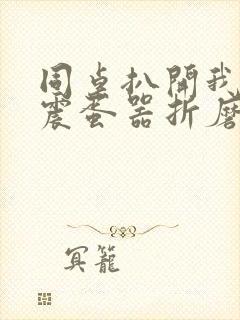 同桌扒開我
震蛋器折磨
冥籠